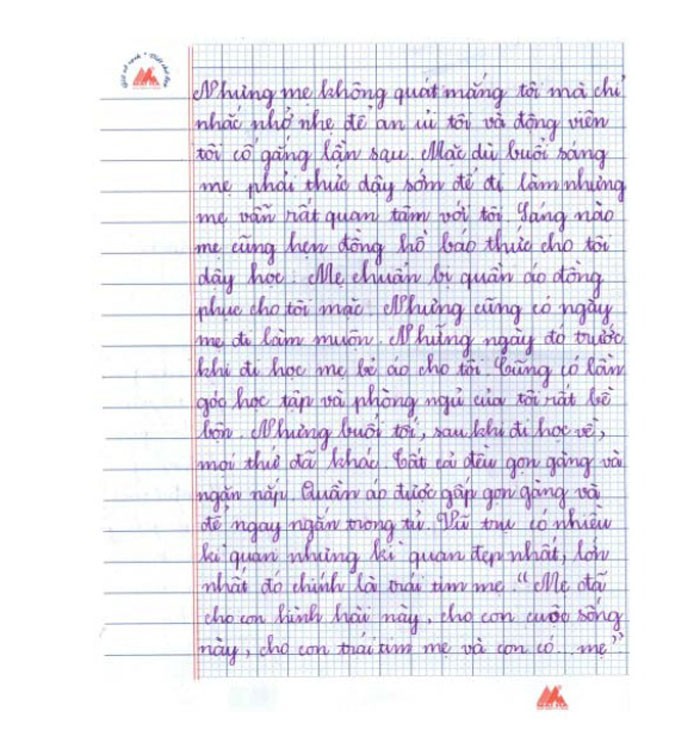 Giữ vở sạch • Viết chữ đẹp
Nhưng mẹ không quát mắng tôi mà chỉ
nhắc nhở nhẹ để an ủi tôi và động viên
tôi cố gắng lần sau. Mặc dù buổi sáng
mẹ phải thức dậy sớm để đi làm nhưng
mẹ vẫn rất quan tâm với tôi. Sáng nào
mẹ cũng hẹn đồng hồ báo thức cho tôi
dậy học. Mẹ chuẩn bị quần áo đồng
phục cho tôi mặc. Nhưng cũng có ngày
mẹ đi làm muộn. Những ngày đó trước
khi đi học mẹ bẻ áo cho tôi. Cũng có lần
góc học tập và phòng ngủ của tôi rất bề
bộn. Nhưng buổi tối, sau khi đi học về,
mọi thứ đã khác. Tất cả đều gọn gàng và
ngăn nắp. Quần áo được gấp gọn gàng và
để ngay ngắn trong tủ. Vũ trụ có nhiều
kì quan nhưng kì quan đẹp nhất, lớn
nhất đó chính là trái tim mẹ. "Mẹ đã
cho con hình hài này, cho con cuộc sống
này, cho con trái tim mẹ và con có... mẹ"